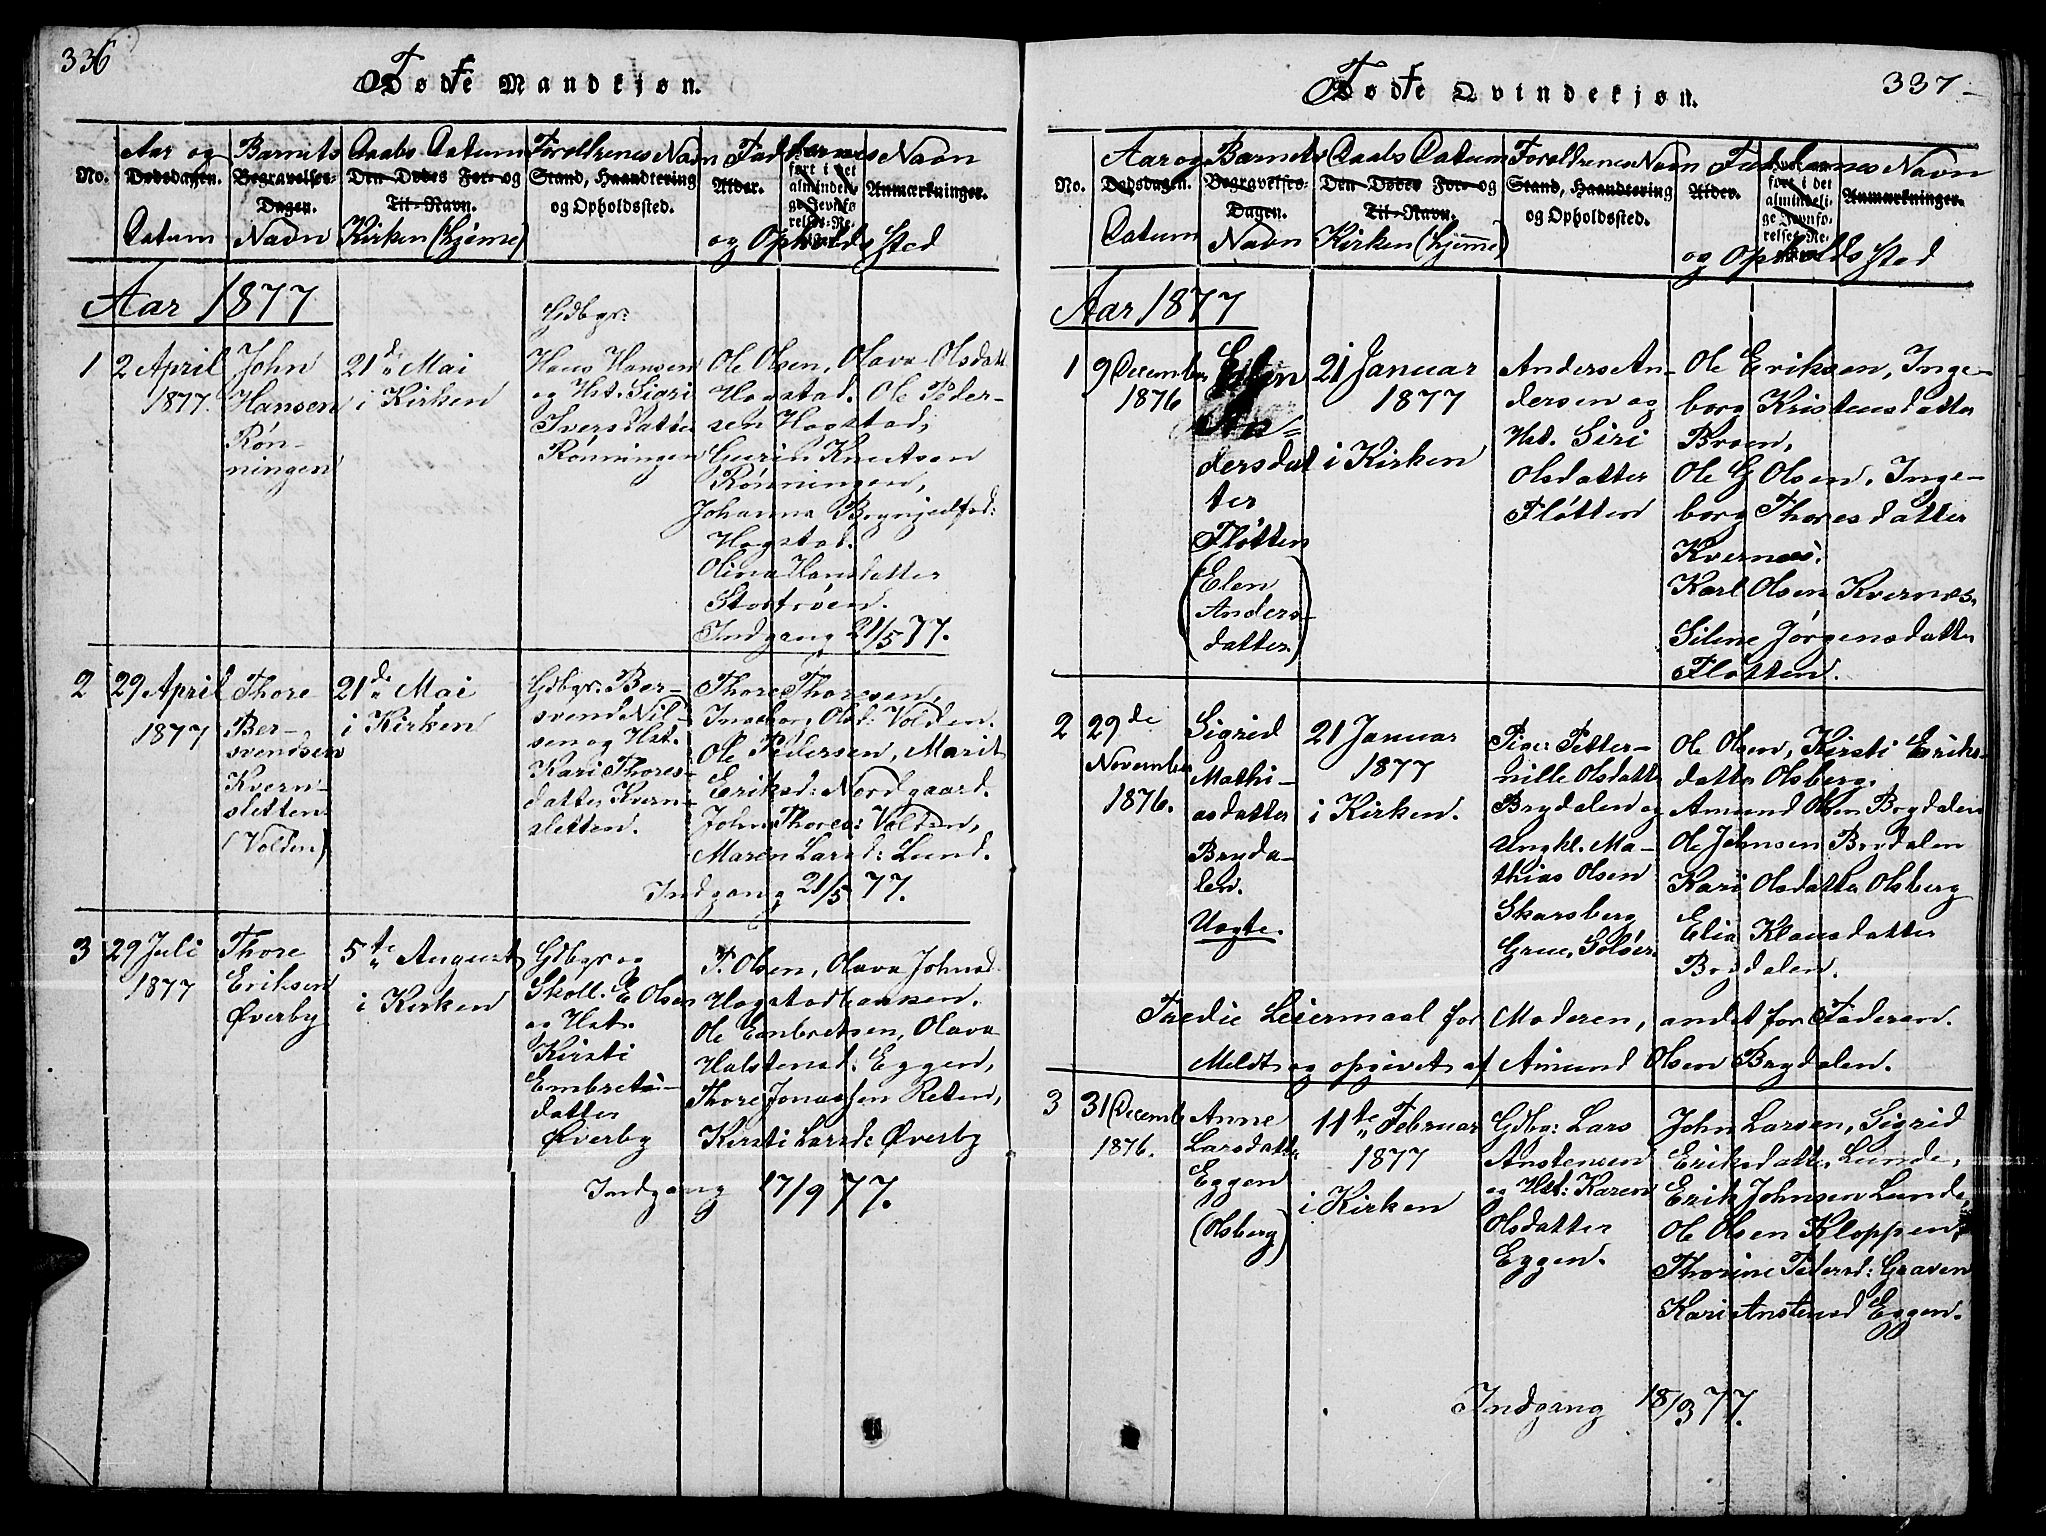 336
Fødte Mandkjøn.
No.
Aar og
Dødsdagen.
Datum
Barnets
Begravelses-
Dagen.
Navn
Daabs Datum
Den Dødes For- og
Til-Navn.
Kirken (hjeme)
Foreldrenes Navn
Stand, Haandtering
og Opholdssted.
Faddernes Navn
Alder.
ført i det
almindeli-
ge Jevnfø-
relses-Re-
Anmærkninger.
og Opholds Sted
Aar 1877
1
2 April
1877.
John
Hansen
Røn-
ningen
21de Mai
i Kirken
Gdbgr:
Hans Hansen
og Hst. Sigri
Iversdatter
Rønningen
Ole Olsen, Olava Olsdatt
Hogstad. Ole Peder-
sen Hogstad,
Gurin Knutsen
Rønningen,
Johanna Brynjulfsd:
Hogstad.
Olina Hansdatter
Stortrøen.
Indgang 21/5 77.
2
29 April
1877
Thore
Ber-
svendsen
Kvern-
sletten
(Volden)
21de Mai
i Kirken
Gdbgr: Ber-
svend Nil-
sen og Hst.
Kari Thores-
datter Kvern-
sletten.
Thore Thoresen,
Ingebor, Olsd: Volden.
Ole Pedersen, Marit
Eriksd: Nordgaard.
John Thores: Volden,
Maren Larsd: Lund.
Indgang 21/5 77.
3
29 Juli
1877
Thore
Eriksen
Øverby
5te August
i Kirken
Gdbgr og
Skoll. E Olsen
og Hst.
Kirsti
Embrets-
datter
Øverby
T. Olsen, Olava Johnsd.
Hogstadbakken.
Ole Embretsen, Olava
Halstensd: Eggen,
Thore Jonassen Reten,
Kirsti Larsd: Øverby
Indgang 17/9 77.
337
Fødte Qvindekjøn.
No.
Aar og
Dødsdagen.
Datum
Barnets
Begravelses-
Dagen.
Navn
Daabs Datum
Den Dødes For- og
Til-Navn.
Kirken (hjeme)
Foreldrenes Navn
Stand, Haandtering
og Opholdssted.
Faddernes Navn
Alder.
ført i det
almindeli-
ge Jevnfø-
relses-Re-
Anmærkninger.
og Opholds Sted
Aar 1877
1
9 December
1876
Elen
An=
dersdat
ter
Fløtten
(Elen
Anders-
datter)
21 Januar
1877
i Kirken
Anders An-
dersen og
Hst. Siri
Olsdatter
Fløtten
Ole Eriksen, Inge-
borg Kristensdatter
Broen,
Ole G Olsen, Inge-
borg Thoresdatter
Kvernæs.
Karl Olsen Kvernæs,
Siline Jørgensdatter
Fløtten.
2
29de
November
1876.
Sigrid
Mathi-
asdatter
Bryda-
len.
Uægte.
21 Januar
1877
i Kirken.
Pige: Petter-
nille Olsdatte
Brydalen og
Ungkl. Ma-
thias Olsen
Skarsberg
Grue, Soløer
Ole Olsen, Kirsti Eriks-
datter Olsberg,
Amund Olsen Brydalen
Ole Johnsen Brydalen
Kari Olsdatter Olsberg
Elia Klausdatter
Brydalen.
Tredie Leiermaal for Moderen, andet for Faderen.
Meldt og opgivet af Amund Olsen Brydalen.
3
31 Decemb
1876.
Anne
Larsdatte
Eggen
(Olsberg)
11te Februar
1877
i Kirken
Gdbr: Lars
Anstensen
og Hst: Karen
Olsdatter
Eggen.
John Larsen, Sigrid
Eriksdatter Lunde,
Erik Johnsen Lunde,
Ole Olsen Kloppen,
Thorine Pedersd: Graven
Kari Anstensd Eggen.
Indgang 18/3 77.